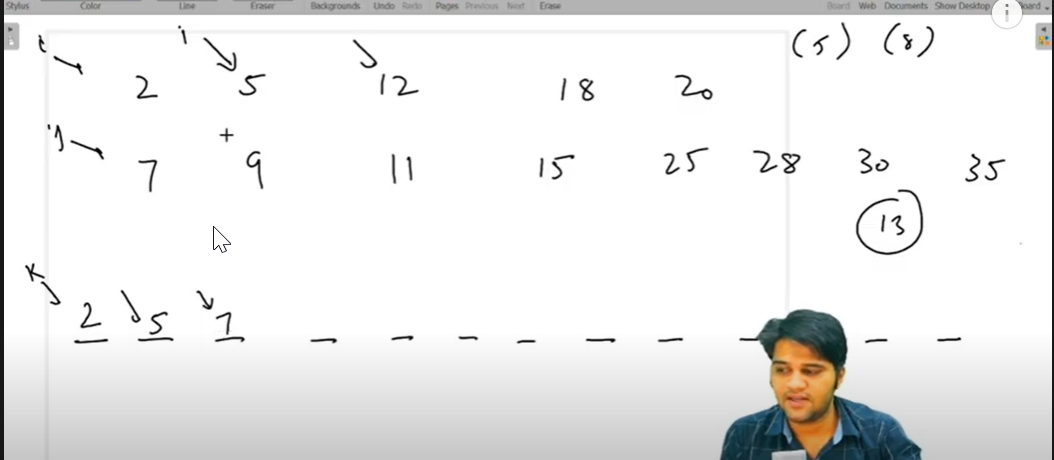 Stylus Color Line Eraser Backgrounds Undo Redo Pages Previous Next Erase Board Web Documents Show Desktop Board
i i (5) (8)
2 5 12 18 20
+
j 7 9 11 15 25 28 30 35
13
K
2 5 7